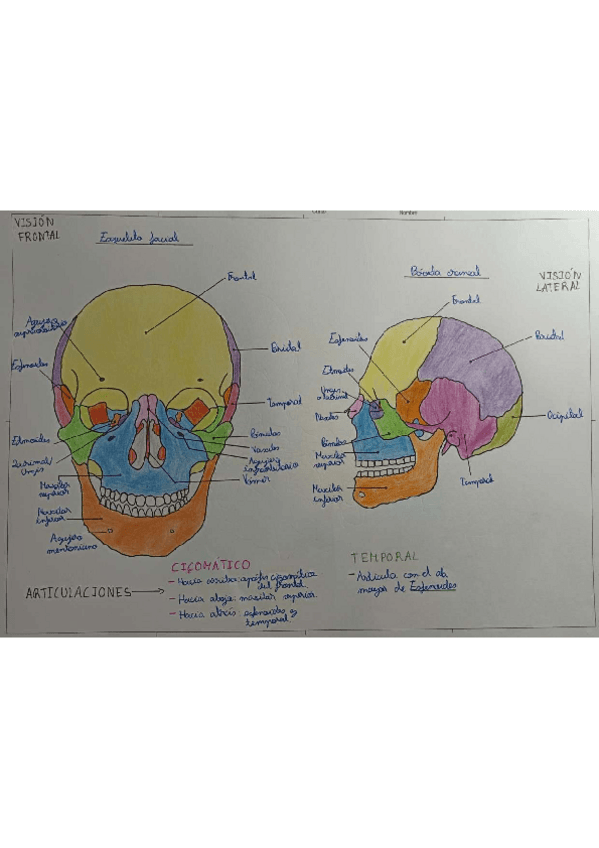 VISIÓN
FRONTAL
Esqueleto facial
Frontal
Agujero
supraorbitario
Esfenoides
Etmoides
Lacrimal/
Ungis
Maxilar
superior
Maxilar
inferior
Agujero
mentoniano
Parietal
Temporal
Pómulos
Nasales
Agujero
infraorbitario
Vómer
Bóveda craneal
VISIÓN
LATERAL
Frontal
Esfenoides
Etmoides
Unguis
o lacrimal
Nasales
Pómulos
Maxilar
superior
Maxilar
inferior
Parietal
Occipital
Temporal
ARTICULACIONES
CIGOMATICO
- Hacia arriba: apófisis cigomática
del frontal.
- Hacia abajo: maxilar superior.
- Hacia atrás: esfenoides y
temporal
TEMPORAL
- Articula con el ala
mayor de Esfenoides